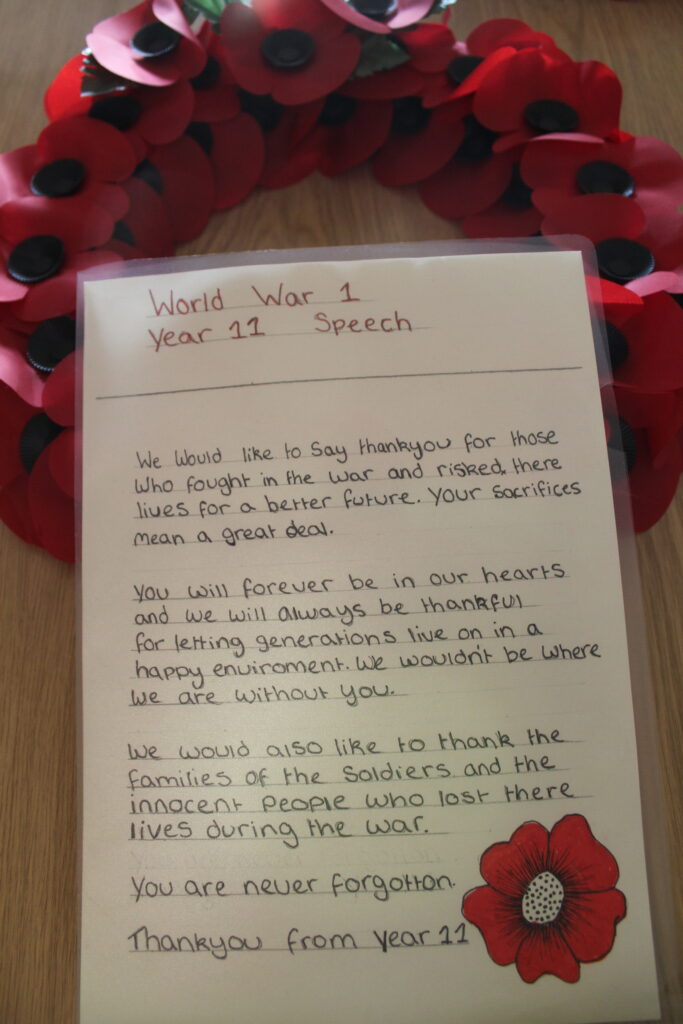 World War 1
Year 11 Speech
We would like to say thankyou for those
who fought in the war and risked, there
lives for a better future. Your sacrifices
mean a great deal.
You will forever be in our hearts
and we will always be thankful
for letting generations live on in a
happy enviroment. We wouldn't be where
we are without you.
We would also like to thank the
families of the soldiers and the
innocent people who lost there
lives during the war.
You are never forgotton.
Thankyou from Year 11